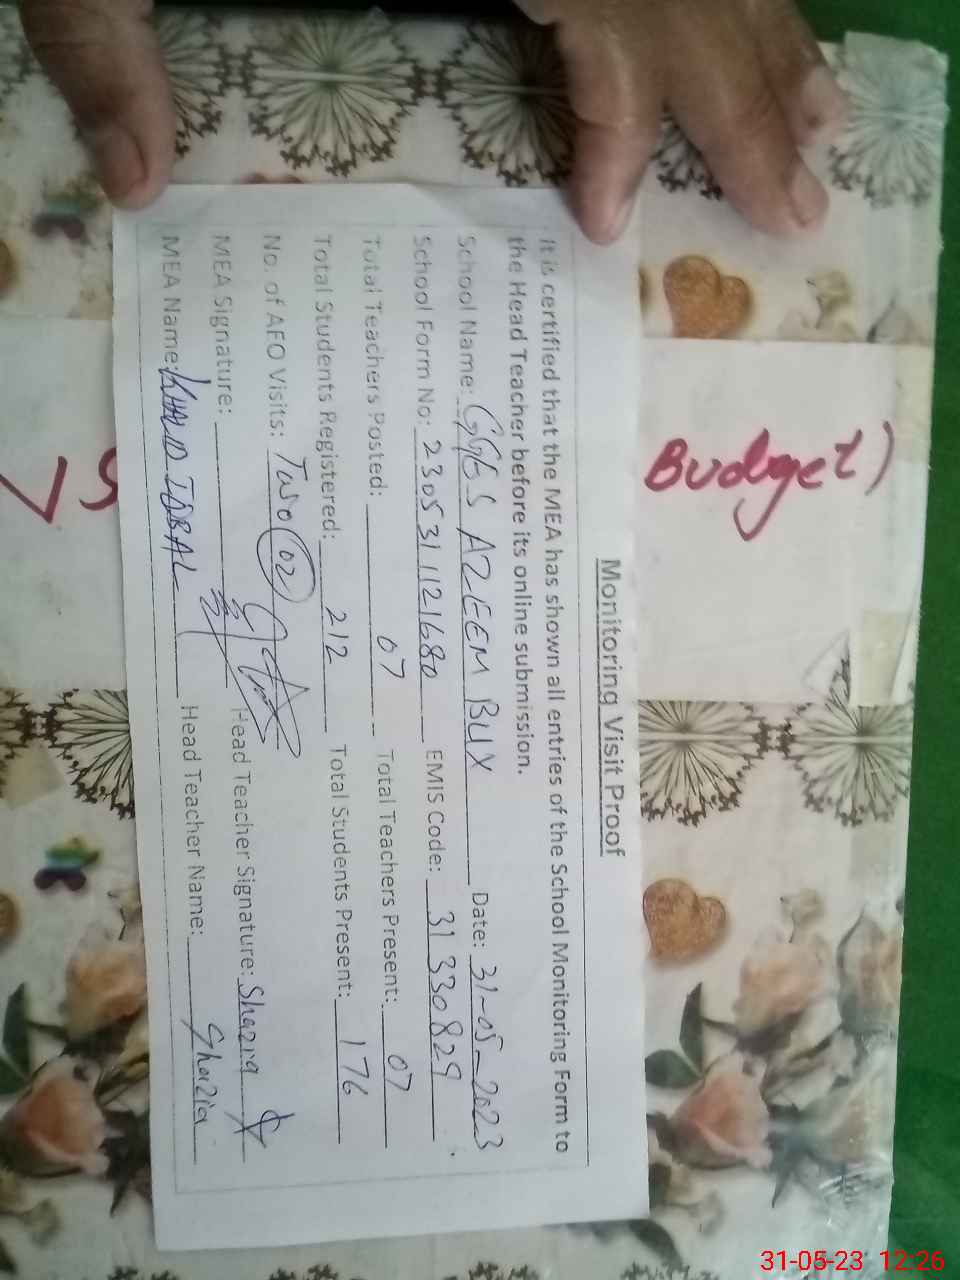 Monitoring Visit Proof
It is certified that the MEA has shown all entries of the School Monitoring Form to
the Head Teacher before its online submission.
School Name: GGES AZEEM BUX Date: 31-05-2023
School Form No: 230531121680 EMIS Code: 31330829
Total Teachers Posted: 07 Total Teachers Present: 07
Total Students Registered: 212 Total Students Present: 176
No. of AFO Visits: Two (02)
MEA Signature: Head Teacher Signature: Shazia
MEA Name: KHALID IQBAL Head Teacher Name: Shazia
Budget)
VS
31-05-23 12:26